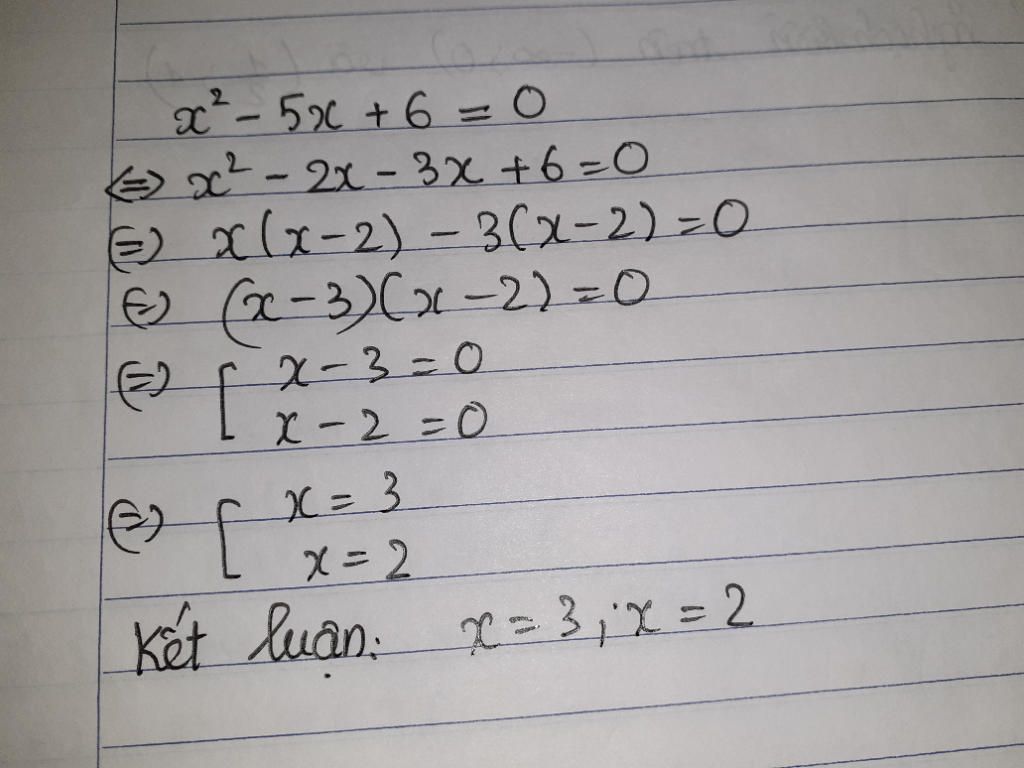 x² - 5x + 6 = 0
⇔ x² - 2x - 3x + 6 = 0
⇔ x(x-2) - 3(x-2) = 0
⇔ (x-3)(x-2) = 0
⇔ [ x - 3 = 0
x - 2 = 0
⇔ [ x = 3
x = 2
Kết luận: x = 3; x = 2